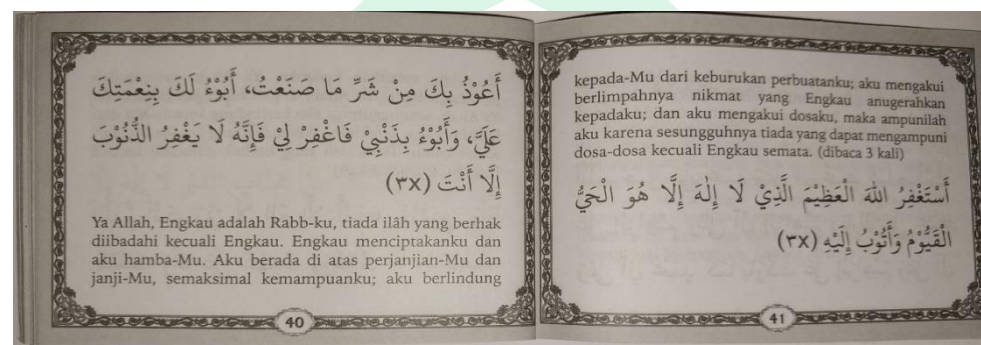 أَعُوْذُ بِكَ مِنْ شَرِّ مَا صَنَعْتُ، أَبُوْءُ لَكَ بِنِعْمَتِكَ
عَلَيَّ، وَأَبُوْءُ بِذَنْبِيْ فَاغْفِرْ لِيْ فَإِنَّهُ لَا يَغْفِرُ الذُّنُوْبَ
إِلَّا أَنْتَ (٣x)
Ya Allah, Engkau adalah Rabb-ku, tiada ilâh yang berhak
diibadahi kecuali Engkau. Engkau menciptakanku dan
aku hamba-Mu. Aku berada di atas perjanjian-Mu dan
janji-Mu, semaksimal kemampuanku; aku berlindung
40
kepada-Mu dari keburukan perbuatanku; aku mengakui
berlimpahnya nikmat yang Engkau anugerahkan
kepadaku; dan aku mengakui dosaku, maka ampunilah
aku karena sesungguhnya tiada yang dapat mengampuni
dosa-dosa kecuali Engkau semata. (dibaca 3 kali)
أَسْتَغْفِرُ اللهَ الْعَظِيْمَ الَّذِيْ لَا إِلٰهَ إِلَّا هُوَ الْحَيُّ
الْقَيُّوْمُ وَأَتُوْبُ إِلَيْهِ (٣x)
41